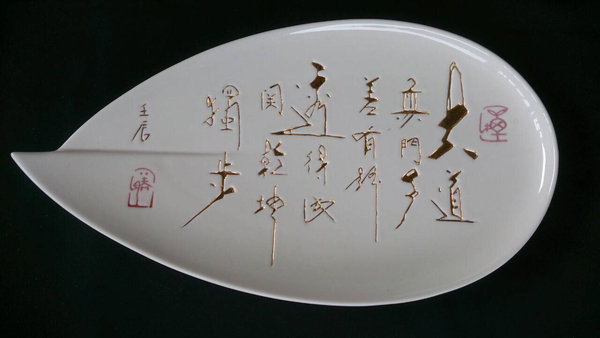 大道
無門千
差有路
透得此
関乾坤
獨步
壬辰